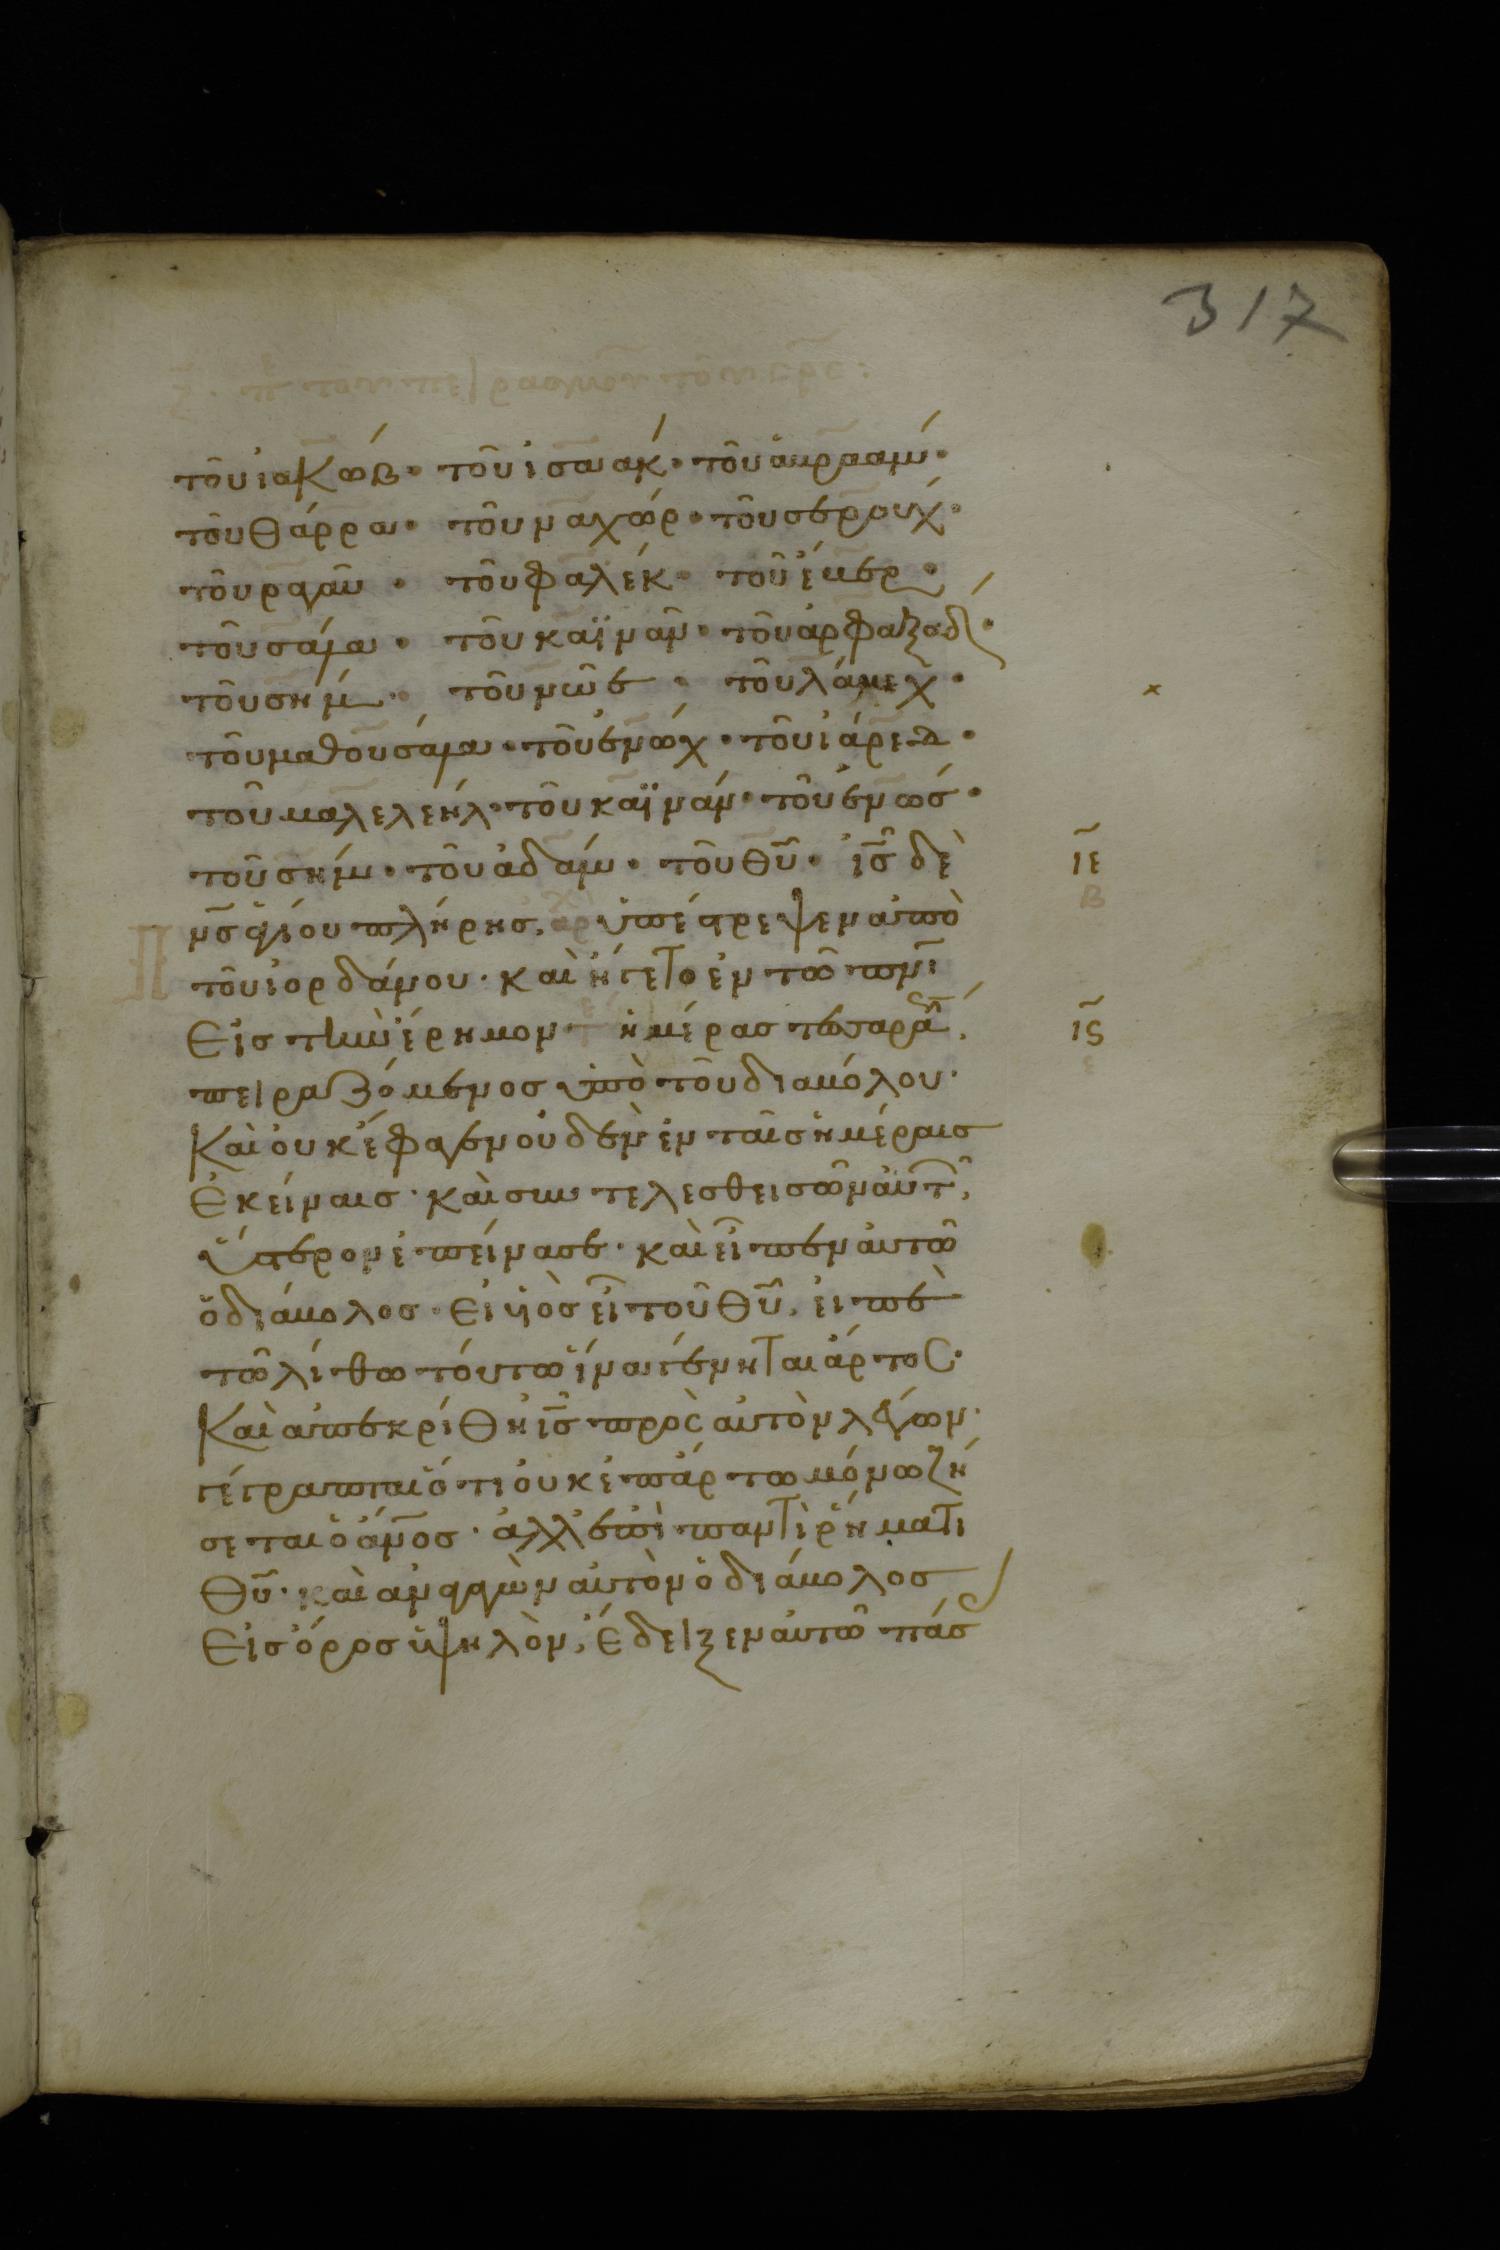 317
ζ · πε του πειρασμου του σρς :
τοῦ ἰακώβ · τοῦ ἰσαάκ · τοῦ ἀβραάμ ·
τοῦ θάρρα · τοῦ ναχώρ · τοῦ σερούχ ·
τοῦ ραγαῦ · τοῦ φαλέκ · τοῦ ἔβερ ·
τοῦ σάλα · τοῦ καϊνᾶν · τοῦ ἀρφαξάδ ·
τοῦ σήμ · τοῦ νῶε · τοῦ λάμεχ ·
τοῦ μαθουσάλα · τοῦ ἐνώχ · τοῦ ἰάρεδ ·
τοῦ μαλελεήλ · τοῦ καϊνάν · τοῦ ἐνώσ ·
τοῦ σήθ · τοῦ ἀδάμ · τοῦ θυ · ις δὲ
ιε
πνσ ἁγίου πλήρησ, αρχ ὑπέστρεψεν ἀπὸ
β
τοῦ ἰορδάνου · καὶ ἤγετο ἐν τῶ πνι
εἰσ τὴν ἔρημον ἡμέρασ τεσαρακ,
ις
ε
πειραζόμενοσ ὑπὸ τοῦ διαβόλου ·
καὶ οὐκ ἔφαγεν οὐδὲν ἐν ταῖσ ἡμέραισ
ἐκείναισ · καὶ συντελεσθεισῶν αὐτ,
ὕστερον ἐπείνασε · καὶ εἶπεν αὐτῶ
ὁ διάβολοσ · εἰ υἱὸσ εἶ τοῦ θυ, εἰπὲ
τῶ λίθω τούτω ἵνα γένηται ἄρτος ·
καὶ ἀπεκρίθη ις πρὸς αὐτὸν λέγων ·
γέγραπται ὅτι οὐκ ἐπ ἄρτω μόνω ζή
σεται ὁ ανοσ · ἀλλ ἐπὶ παντὶ ῥήματι
θυ · καὶ ἀναγαγὼν αὐτὸν ὁ διάβολοσ
εἰσ ὄροσ ὑψηλὸν, ἔδειξεν αὐτῶ πάσ